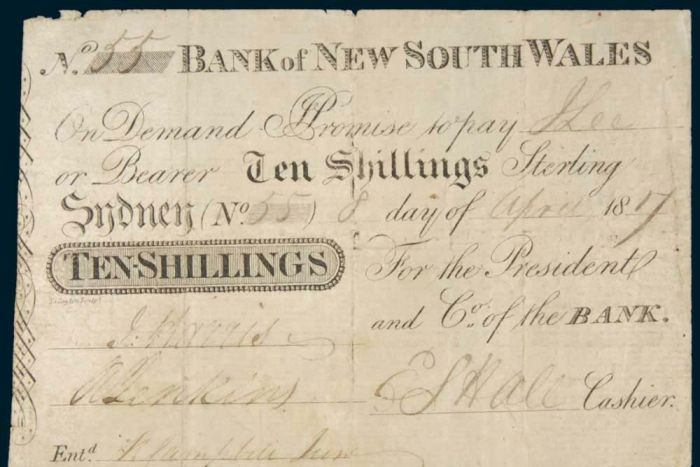 No. 55 BANK of NEW SOUTH WALES
On Demand Promise to pay J Lee
or Bearer Ten Shillings Sterling
Sydney (No. 55) 8 day of April 1817
TEN-SHILLINGS
For the President
and Co. of the BANK.
J. Harris
R Jenkins
E S Hall Cashier.
Entd. R Campbell Junr